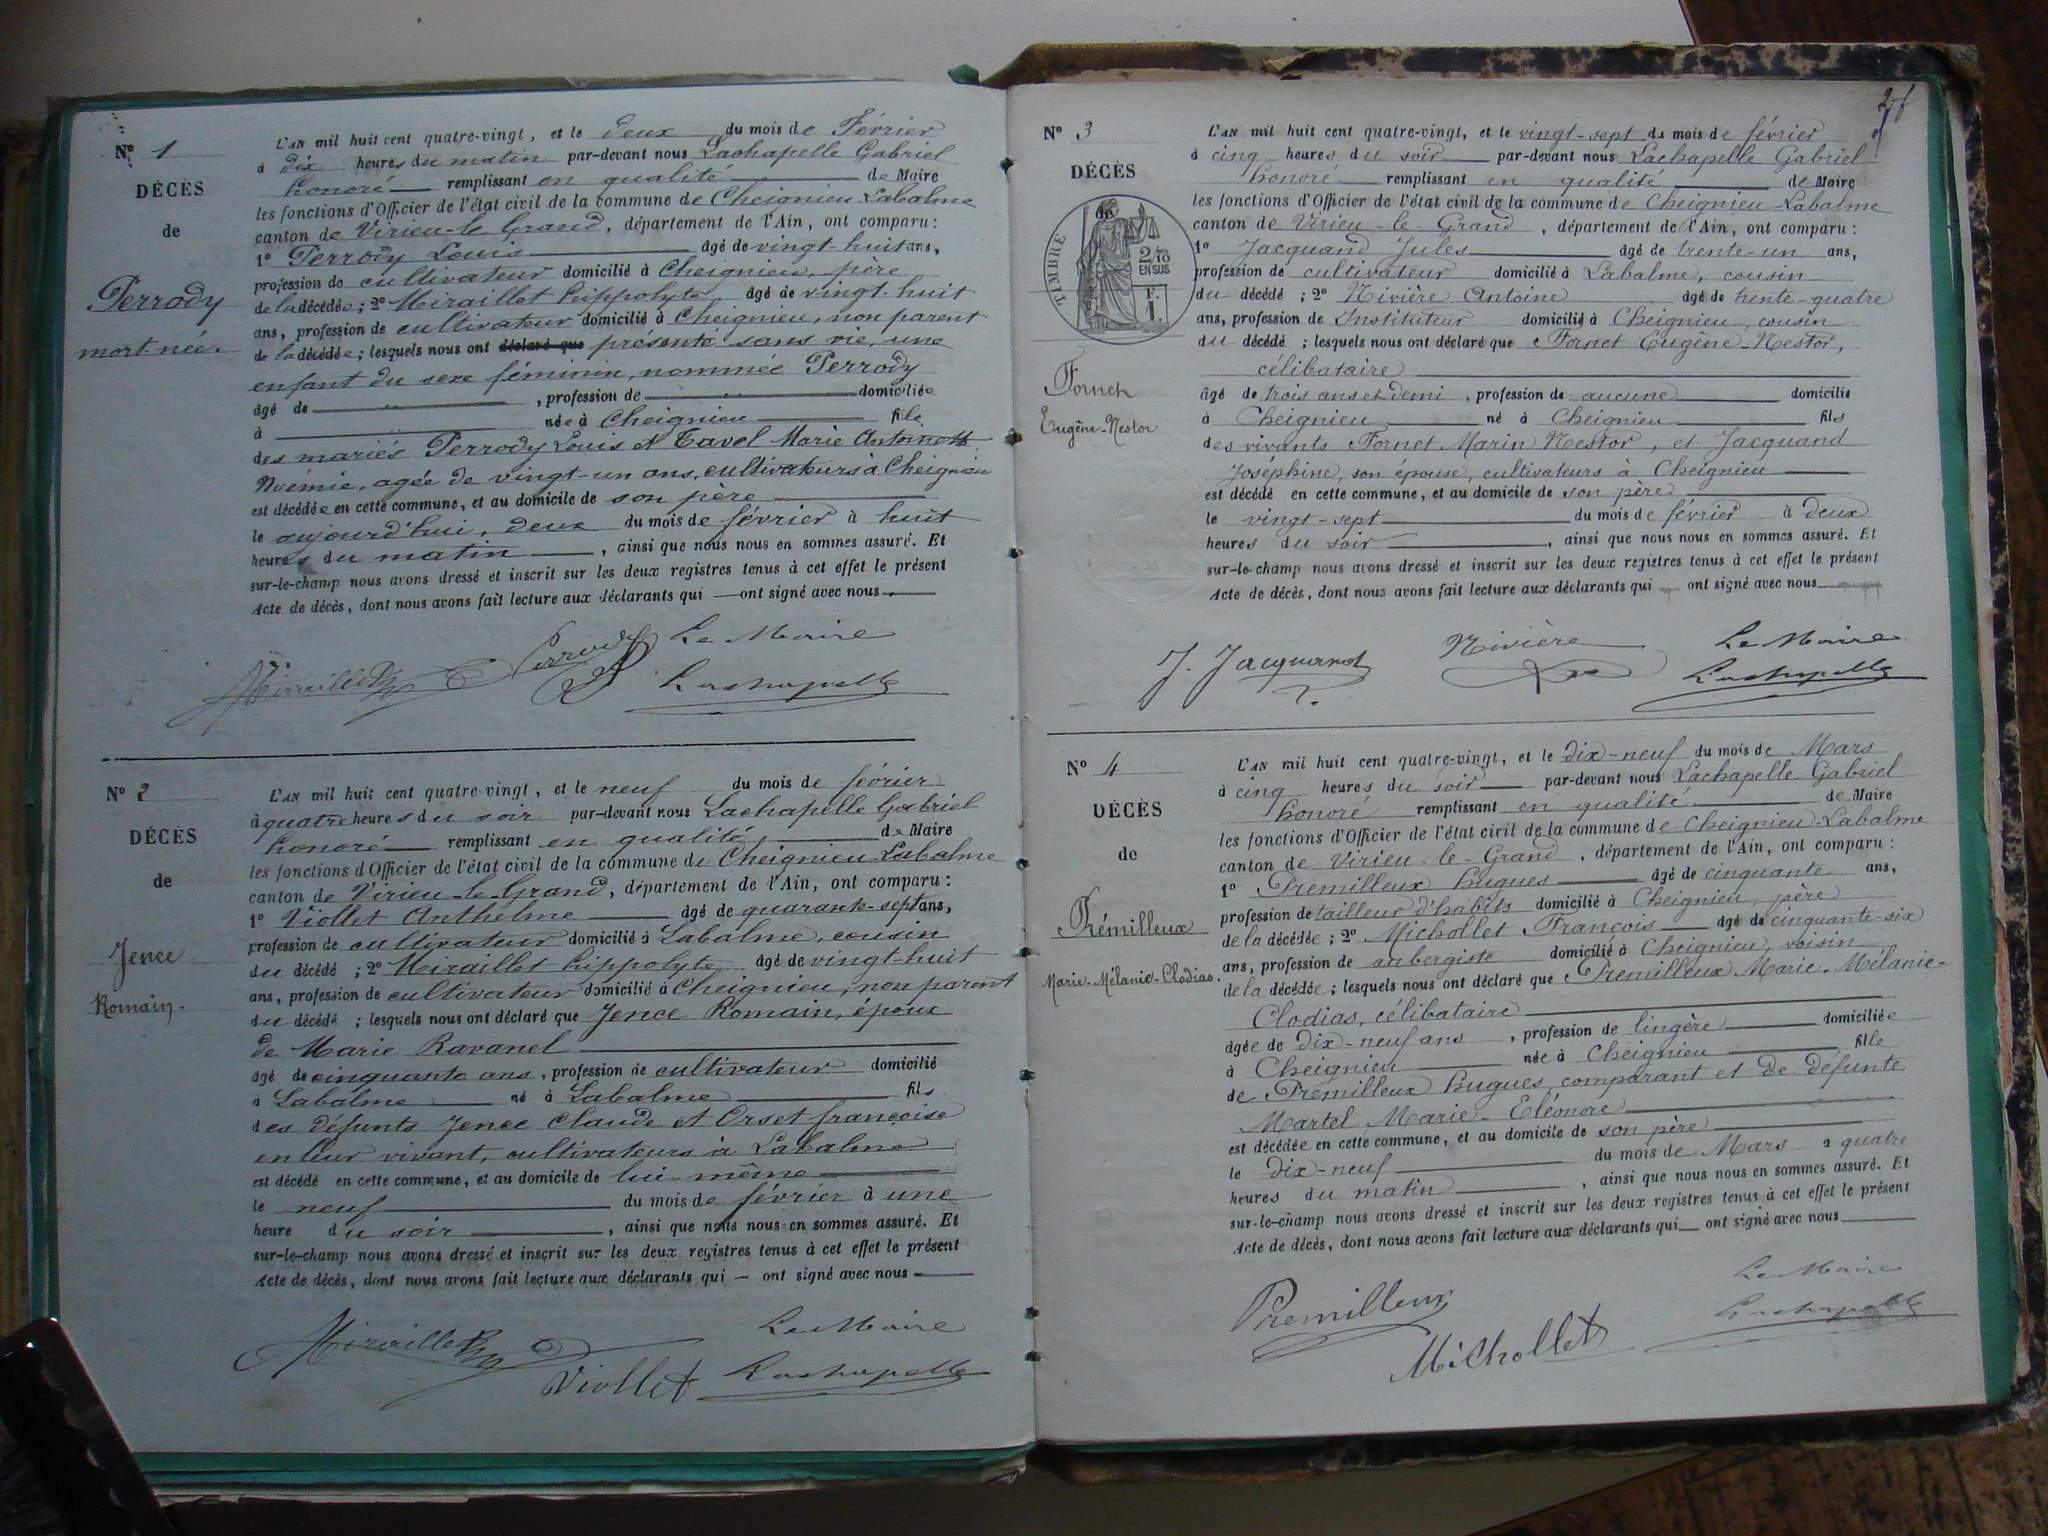 N° 1
DÉCÈS
de
Perrody
mort-née.
L'AN mil huit cent quatre-vingt, et le deux du mois de Février
à dix heures du matin par-devant nous Lachapelle Gabriel
honoré remplissant en qualité de Maire
les fonctions d'Officier de l'état civil de la commune de Cheignieu Labalme
canton de Virieu-le Grand, département de l'Ain, ont comparu :
1° Perrody Louis âgé de vingt-huit ans,
profession de cultivateur domicilié à Cheignieu, père
de la décédée ; 2° Miraillet hippolyte âgé de vingt-huit
ans, profession de cultivateur domicilié à Cheignieu, non parent
de la décédée ; lesquels nous ont déclaré que présenté sans vie, une
enfant du sexe féminin, nommée Perrody
âgé de , profession de domiciliée
à née à Cheignieu fille
des mariés Perrody Louis et Tavel Marie Antoinette
Noémie, agée de vingt-un ans, cultivateurs à Cheignieu
est décédée en cette commune, et au domicile de son père
le aujourd'hui, deux du mois de février à huit
heures du matin , ainsi que nous nous en sommes assuré. Et
sur-le-champ nous avons dressé et inscrit sur les deux registres tenus à cet effet le présent
Acte de décès, dont nous avons fait lecture aux déclarants qui — ont signé avec nous
Le Maire
Miraillet Perrody Lachapelle
N° 2
DÉCÈS
de
Jence
Romain.
L'AN mil huit cent quatre-vingt, et le neuf du mois de février
à quatre heures du soir par-devant nous Lachapelle Gabriel
honoré remplissant en qualité de Maire
les fonctions d'Officier de l'état civil de la commune de Cheignieu-Labalme
canton de Virieu-le-Grand, département de l'Ain, ont comparu :
1° Viollet Anthelme âgé de quarante-sept ans,
profession de cultivateur domicilié à Labalme, cousin
du décédé ; 2° Miraillet hippolyte âgé de vingt-huit
ans, profession de cultivateur domicilié à Cheignieu, non parent
du décédé ; lesquels nous ont déclaré que Jence Romain, époux
de Marie Ravanel
âgé de cinquante ans, profession de cultivateur domicilié
à Labalme né à Labalme fils
des défunts Jence Claude et Orset françoise
en leur vivant, cultivateurs à Labalme
est décédé en cette commune, et au domicile de lui-même
le neuf du mois de février à une
heure du soir , ainsi que nous nous en sommes assuré. Et
sur-le-champ nous avons dressé et inscrit sur les deux registres tenus à cet effet le présent
Acte de décès, dont nous avons fait lecture aux déclarants qui — ont signé avec nous
Le Maire
Miraillet Viollet Lachapelle
2
N° 3
DÉCÈS
de
TIMBRE
2/10
EN SUS
F.
1.
Fornet
Eugène-Nestor
L'AN mil huit cent quatre-vingt, et le vingt-sept du mois de février
à cinq heures du soir par-devant nous Lachapelle Gabriel
honoré remplissant en qualité de Maire
les fonctions d'Officier de l'état civil de la commune de Cheignieu-Labalme
canton de Virieu-le-Grand, département de l'Ain, ont comparu :
1° Jacquand Jules âgé de trente-un ans,
profession de cultivateur domicilié à Labalme, cousin
du décédé ; 2° Nivière Antoine âgé de trente-quatre
ans, profession de Instituteur domicilié à Cheignieu, cousin
du décédé ; lesquels nous ont déclaré que Fornet Eugène-Nestor,
célibataire
âgé de trois ans et demi, profession de aucune domicilié
à Cheignieu né à Cheignieu fils
des vivants Fornet Marin Nestor, et Jacquand
Joséphine, son épouse, cultivateurs à Cheignieu
est décédé en cette commune, et au domicile de son père
le vingt-sept du mois de février à deux
heures du soir , ainsi que nous nous en sommes assuré. Et
sur-le-champ nous avons dressé et inscrit sur les deux registres tenus à cet effet le présent
Acte de décès, dont nous avons fait lecture aux déclarants qui ont signé avec nous
Le Maire
J. Jacquand Nivière Lachapelle
N° 4
DÉCÈS
de
Prémilleux
Marie-Mélanie-Clodias.
L'AN mil huit cent quatre-vingt, et le dix-neuf du mois de Mars
à cinq heures du soir par-devant nous Lachapelle Gabriel
honoré remplissant en qualité de Maire
les fonctions d'Officier de l'état civil de la commune de Cheignieu-Labalme
canton de Virieu-le-Grand, département de l'Ain, ont comparu :
1° Premilleux hugues âgé de cinquante ans,
profession de tailleur d'habits domicilié à Cheignieu, père
de la décédée ; 2° Michollet François âgé de cinquante-six
ans, profession de aubergiste domicilié à Cheignieu, voisin
de la décédée ; lesquels nous ont déclaré que Premilleux Marie-Mélanie-
Clodias, célibataire
agée de dix-neuf ans, profession de lingère domiciliée
à Cheignieu née à Cheignieu fille
de Premilleux hugues, comparant et de défunte
Martel Marie-Eléonore
est décédée en cette commune, et au domicile de son père
le dix-neuf du mois de Mars à quatre
heures du matin , ainsi que nous nous en sommes assuré. Et
sur-le-champ nous avons dressé et inscrit sur les deux registres tenus à cet effet le présent
Acte de décès, dont nous avons fait lecture aux déclarants qui — ont signé avec nous
Le Maire
Premilleux Michollet Lachapelle